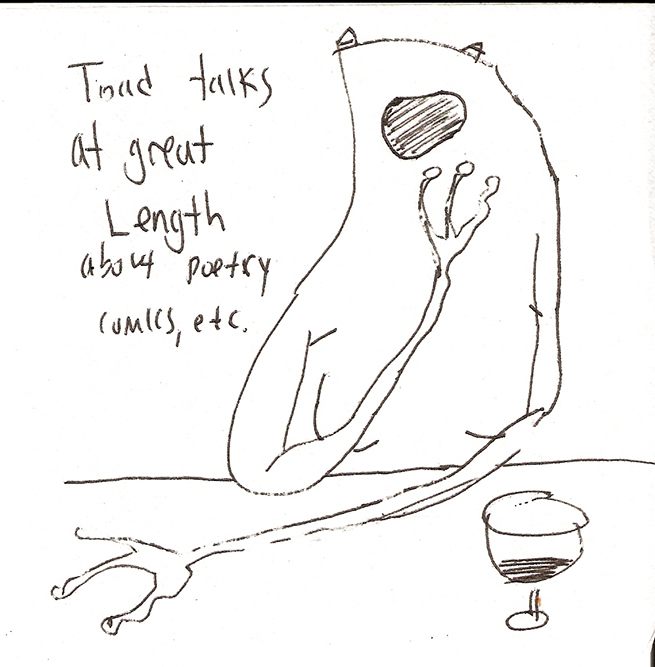 Toad talks
at great
Length
about poetry
comics, etc.